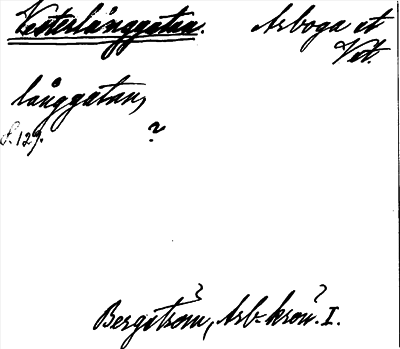 Vesterlånggatan. Arboga st
Vst.
långgatan,
S. 129. ?
Bergström, Arb. krön. I.